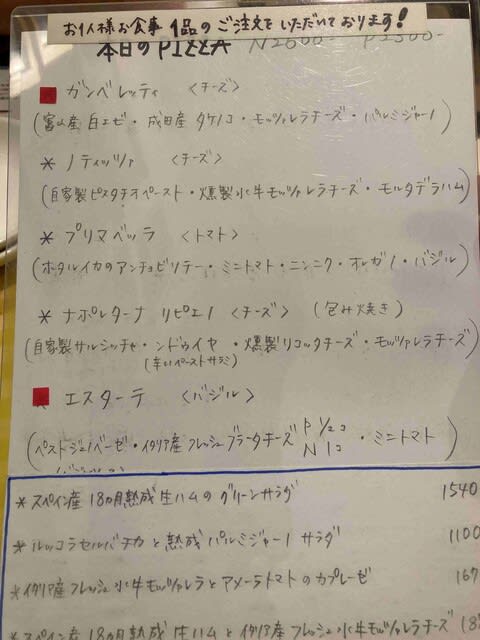 お1人様お食事1品のご注文をいただいております!
本日のPIZZA N2000- P2300-
■ ガンベレッティ 〈チーズ〉
(富山産白エビ・成田産タケノコ・モッツァレラチーズ・パルミジャーノ)
* ノティッツァ 〈チーズ〉
(自家製ピスタチオペースト・燻製水牛モッツァレラチーズ・モルタデラハム)
* プリマベッラ 〈トマト〉
(ホタルイカのアンチョビソテー・ミニトマト・ニンニク・オレガノ・バジル)
* ナポレターナ リピエノ 〈チーズ〉 (包み焼き)
(自家製サルシッチャ・ンドゥイヤ・燻製リコッタチーズ・モッツァレラチーズ)
(辛いペーストサラミ)
■ エスターテ 〈バジル〉
(ペストジェノベーゼ・イタリア産フレッシュブラータチーズ P 1/2コ N 1コ ・ミニトマト)
*スペイン産18ヵ月熟成生ハムのグリーンサラダ 1540
*ルッコラセルバチカと熟成パルミジャーノサラダ 1100
*イタリア産フレッシュ水牛モッツァレラとアメーラトマトのカプレーゼ
*スペイン産18ヵ月熟成生ハムとイタリア産フレッシュ水牛モッツァレラチーズ